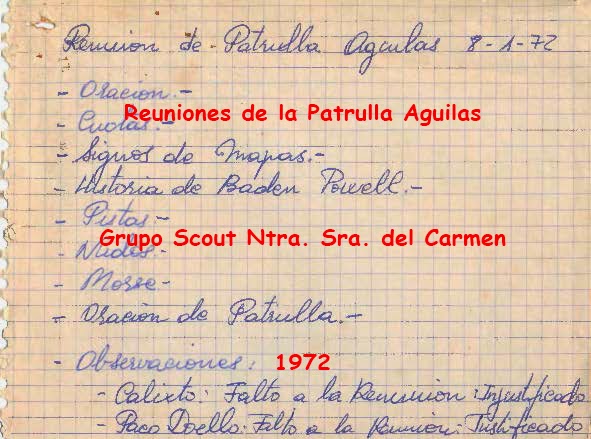 Reunion de Patrulla Aguilas 8-1-72
- Oracion.-
Reuniones de la Patrulla Aguilas
- Cuotas.-
- Signos de Mapas.-
- Historia de Baden Powell.-
- Pistas-
Grupo Scout Ntra. Sra. del Carmen
- Nudos.-
- Morse-
- Oracion de Patrulla.-
- Observaciones: 1972
- Calixto: Falto a la Reunion: Injustificado
- Paco Doello: Falto a la Reunion: Justificado